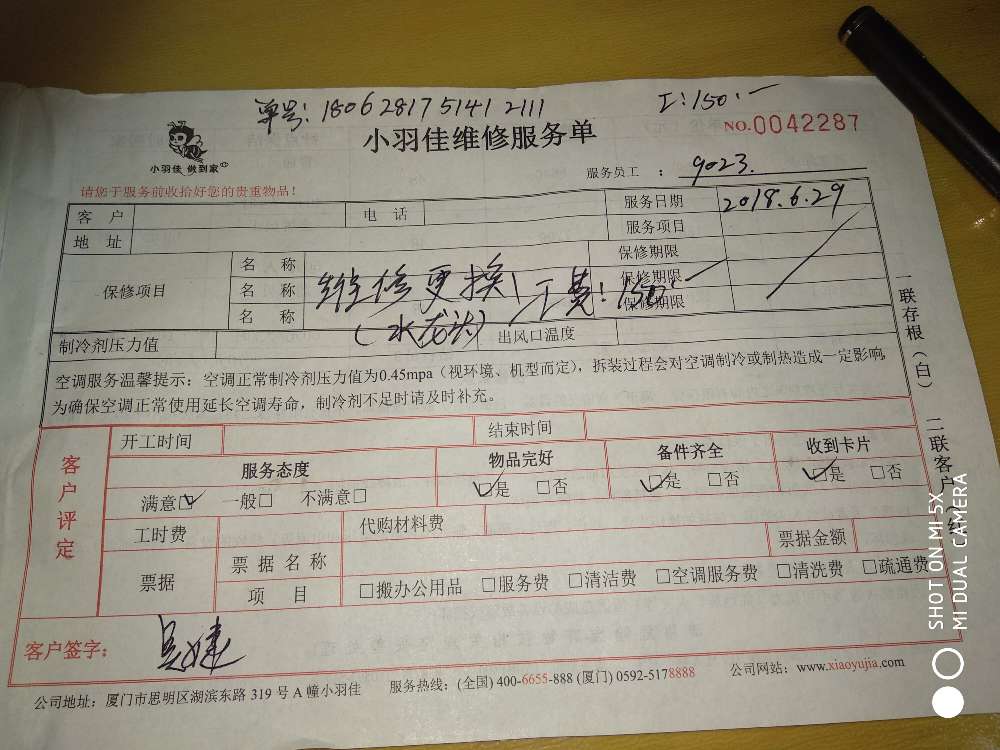 单号: 180628175141 2111
工:150.一
小羽佳 做到家
小羽佳维修服务单
NO.0042287
服务员工 : 9023.
请您于服务前收拾好您的贵重物品!
客户 电话 服务日期 2018.6.29
地址 服务项目
保修项目
名称 保修期限
名称 维修更换 工费:150.一 保修期限
名称 (水龙头) 保修期限
制冷剂压力值 出风口温度
空调服务温馨提示:空调正常制冷剂压力值为0.45mpa(视环境、机型而定),拆装过程会对空调制冷或制热造成一定影响,
为确保空调正常使用延长空调寿命,制冷剂不足时请及时补充。
客户评定
开工时间 结束时间
服务态度 物品完好 备件齐全 收到卡片
满意☑ 一般□ 不满意□ ☑是 □否 ☑是 □否 ☑是 □否
工时费 代购材料费
票据 票据名称 票据金额
项目 □搬办公用品 □服务费 □清洁费 □空调服务费 □清洗费 □疏通费
客户签字:
公司地址:厦门市思明区湖滨东路 319 号 A 幢小羽佳 服务热线:(全国) 400-6655-888 (厦门) 0592-5178888 公司网站:www.xiaoyujia.com
一联存根(白) 二联客户(红
SHOT ON MI 5X
MI DUAL CAMERA